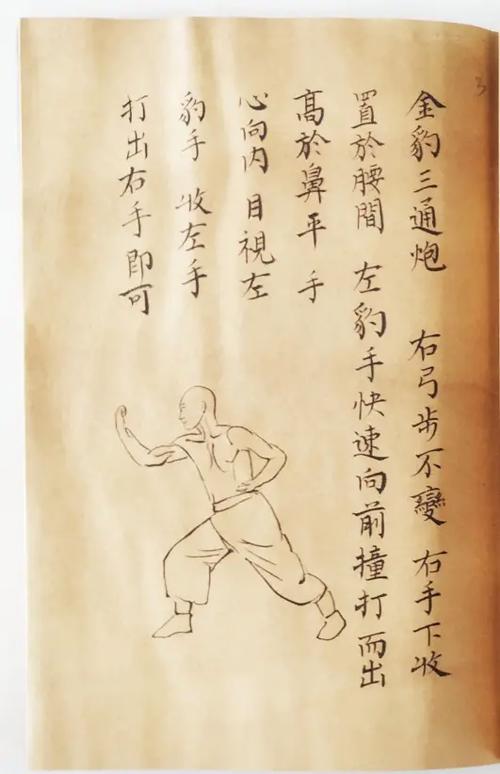 金豹三通炮 右弓步不變 右手下收
置於腰間 左豹手快速向前撞打而出
高於鼻平 手
心向內 目視左
豹手 收左手
打出右手即可
3